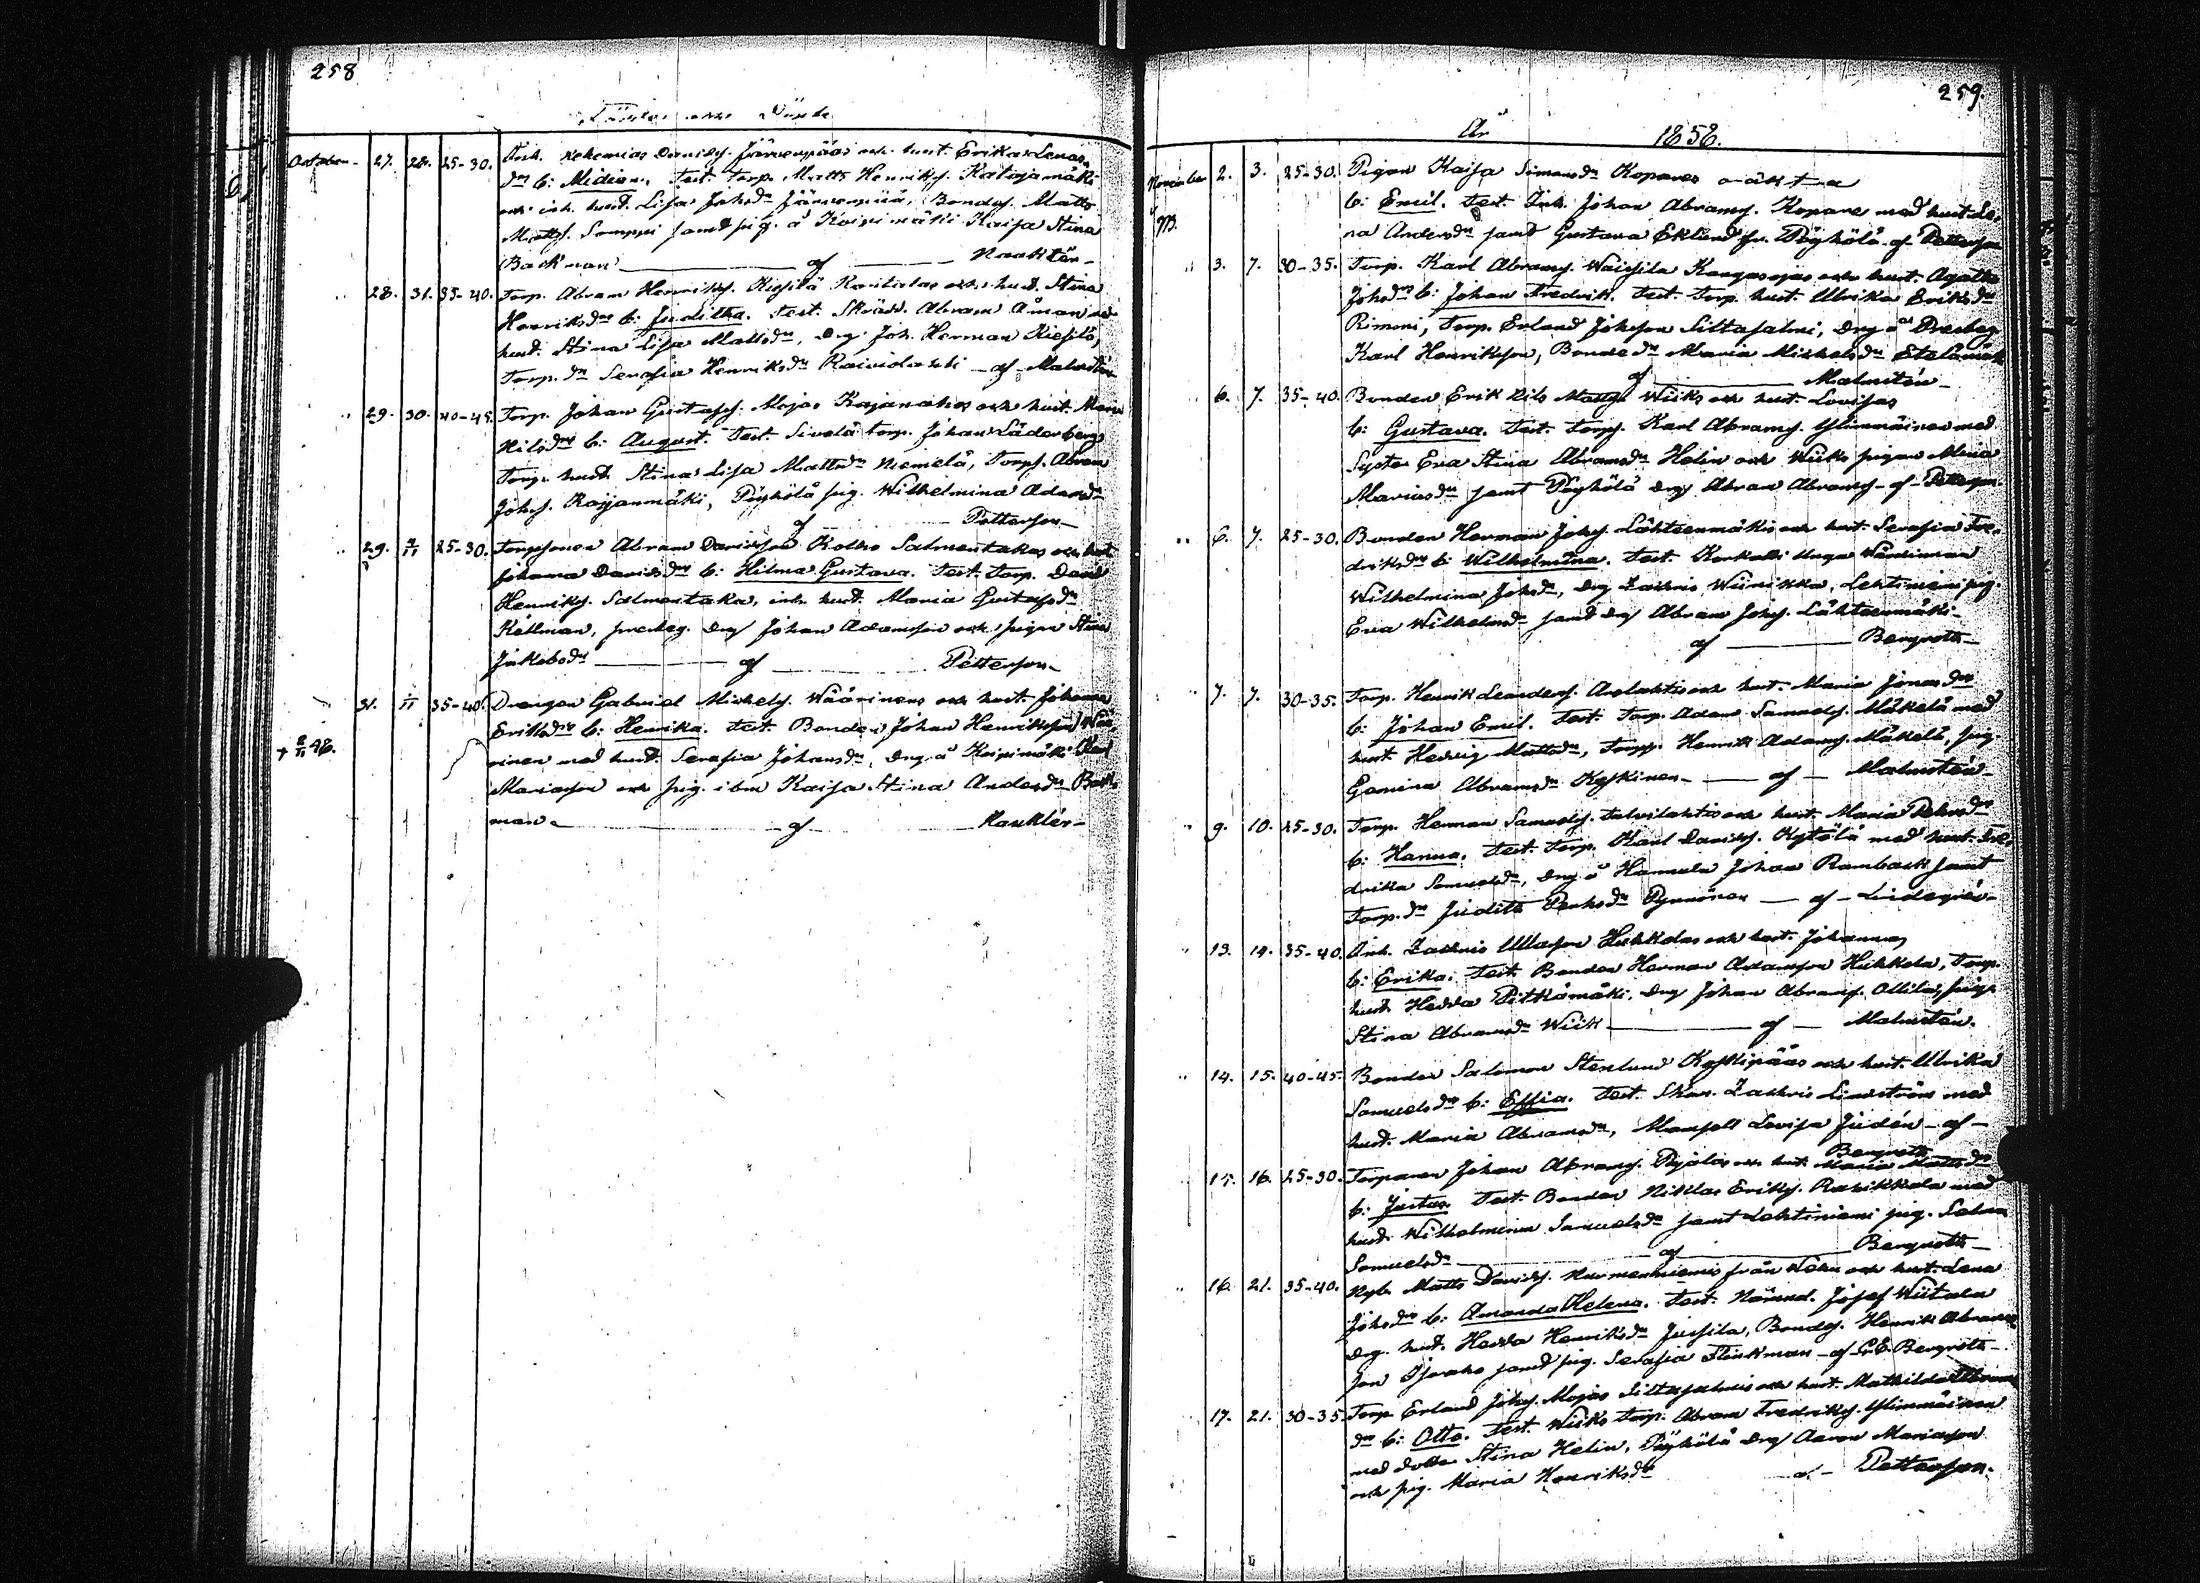 258
Födde och Döpte
October 27. 28. 25-30. Inh. Nehemias Danielss. Järvenpääs och hust. Erika Lenas
dr b: Midian. Test. Torp. Matts Henrikss. Katajamäki
och inh. hust. Lisa Johsdr Järvenpää, Bondes. Matts
Mattss. Samppi samt pig. å Koivimäki Kaisa Stina
Backman — af — Nauklér
" 28. 31. 35-40. Torp. Abram Henrikss. Kiesilä Rantalas och hust. Stina
Henriksdrs b: Juditha. Test. Skrädd. Abram Åman
hust. Stina Lisa Mattsdr, Drg Joh. Herman Kiesilä,
Torp. dr Serafia Henriksdr — af — Malmstén
" 29. 30. 40-45. Torp. Johan Gustafss. Mojas och hust. Maria
Nilsdrs b: August. Test. Sivelä torp. Johan Söderberg
Torp. hust. Stina Lisa Mattsdr Niemelä, Torps. Abram
Johss. Rajanmäki, Pöyhölä pig. Wilhelmina Adamsdr
af — Petterson
" 29. 2/11 25-30. Torpsonen Abram Davidsson Kolho Salmentakas och hust.
Johanna Davidsdrs b: Hilma Gustava. Test. Torp. David
Henrikss. Salmentaka, inh. hust. Maria Gustafsdr
Källman, presteg. Drg Johan Adamsson och pigan Stina
Jakobsdr — af — Petterson
31. 1/11 35-40. Drengen Gabriel Mickelss. Wäärinens och hust. Johanna
Eriksdrs b: Henrika. Test. Bonden Johan Henriksson Wää-
+ 2/11 48. rinen med hust. Serafia Johansdr, Drg å Koivimäki Karl
Mariasson och pig. ibm Kaisa Stina Andersdr Back-
man — af — Nauklér
259.
År 1858.
November 2. 3. 25-30. Pigan Kaisa Simonsdr Kopares oäkta
b: Emil. Test. Inh. Johan Abramss. Kopare med hust. Le-
na Andersdr samt Gustava Eklund fr. Pöyhölä af Petterson
" 3. 7. 30-35. Torp. Karl Abramss. Waissila Kangasojas och hust. Agata
Johsdrs b: Johan Fredrik. Test. Torp. hust. Ulrika Eriksdr
Rimmi, Torp. Erland Johsson Siltasalmi, Drg å Presteg.
Karl Henriksson, Bondedr Maria Mickelsdr Etelämäki
af — Malmstén
" 6. 7. 35-40. Bonden Erik Nils Mattss. Wiiks och hust. Lovisas
b: Gustava. Test. Torps. Karl Abramss. Ylimmäinen med
Syster Eva Stina Abramsdr Helin och Wiiks pigan Maria
Mariasdr samt Pöyhölä drg Abram Abramss. af Petterson
" 6. 7. 25-30. Bonden Herman Johss. Lähteenmäkis och hust. Serafia Fre-
driksdrs b: Wilhelmina. Test. Korkalli unga Wärdinnan
Wilhelmina Johsdr, Drg Zachris Wiinikka, Lehtiniemi pig.
Eva Wilhelmsdr samt drg Abram Johss. Lähteenmäki
af — Bergroth
" 7. 7. 30-35. Torp. Henrik Leanderss. och hust. Maria Jonasdrs
b: Johan Emil. Test. Torp. Adam Samuelss. Mäkelä med
hust. Hedvig Mattsdr, Torps. Henrik Adamss. Mäkelä, pig.
Gamina Abramsdr Koskinen — af — Malmstén
" 9. 10. 25-30. Torp. Herman Samuelss. Talvilahtis och hust. Maria
b: Hanna. Test. Torp. Karl Davidss. Kytölä med hust. Fre-
drika Samuelsdr, Drg å Hannula Johan Ramback samt
Torp. dr Judith Pynnönen — af — Lindegrén
" 13. 14. 35-40. Inh. Zachris Ullasson Huhkolas och hust. Johannas
b: Erika. Test. Bonden Herman Adamsson Huhkola, Torp.
hust. Hedda Pitkämäki, Drg Johan Abramss. Ollila, pig.
Stina Abramsdr Wiik — af — Malmstén.
" 14. 15. 40-45. Bonden Salomon Stenlund Koskipääs och hust. Ulrika
Samuelsdrs b: Effia. Test. Skom. Zachris Lindström med
hust. Maria Abramsdr, Mamsell Lovisa Judén — af —
Bergroth
15. 16. 25-30. Torparen Johan Abramss. och hust. Maria Mattsdrs
b: Justus. Test. Bonden Niklas Erikss. Rasikkala med
hust. Wilhelmina Samuelsdr samt Lehtiniemi pig. Salma
Samuelsdr — af — Bergroth
" 16. 21. 35-40. Nyb. Matts Davidss. Nurmenniemis från Wehu och hust. Lena
Johsdrs b: Amanda Helena. Test. Nämnd. Josef Wiitala
Drg. hust. Hedda Henriksdr Jussila, Bondes. Henrik Abrams-
son samt pig. Serafia Flinkman — af G.E. Bergroth
17. 21. 30-35. Torp. Erland Johss. Mojas Siltasalmis och hust. Mathilda Abrams
drs b: Otto. Test. Wiiks torp. Abram Fredrikss. Ylimmäinen
med dotter Stina Helin, Pöyhölä Drg Aaron Mariasson
och pig. Maria Henriksdr af — Petterson.